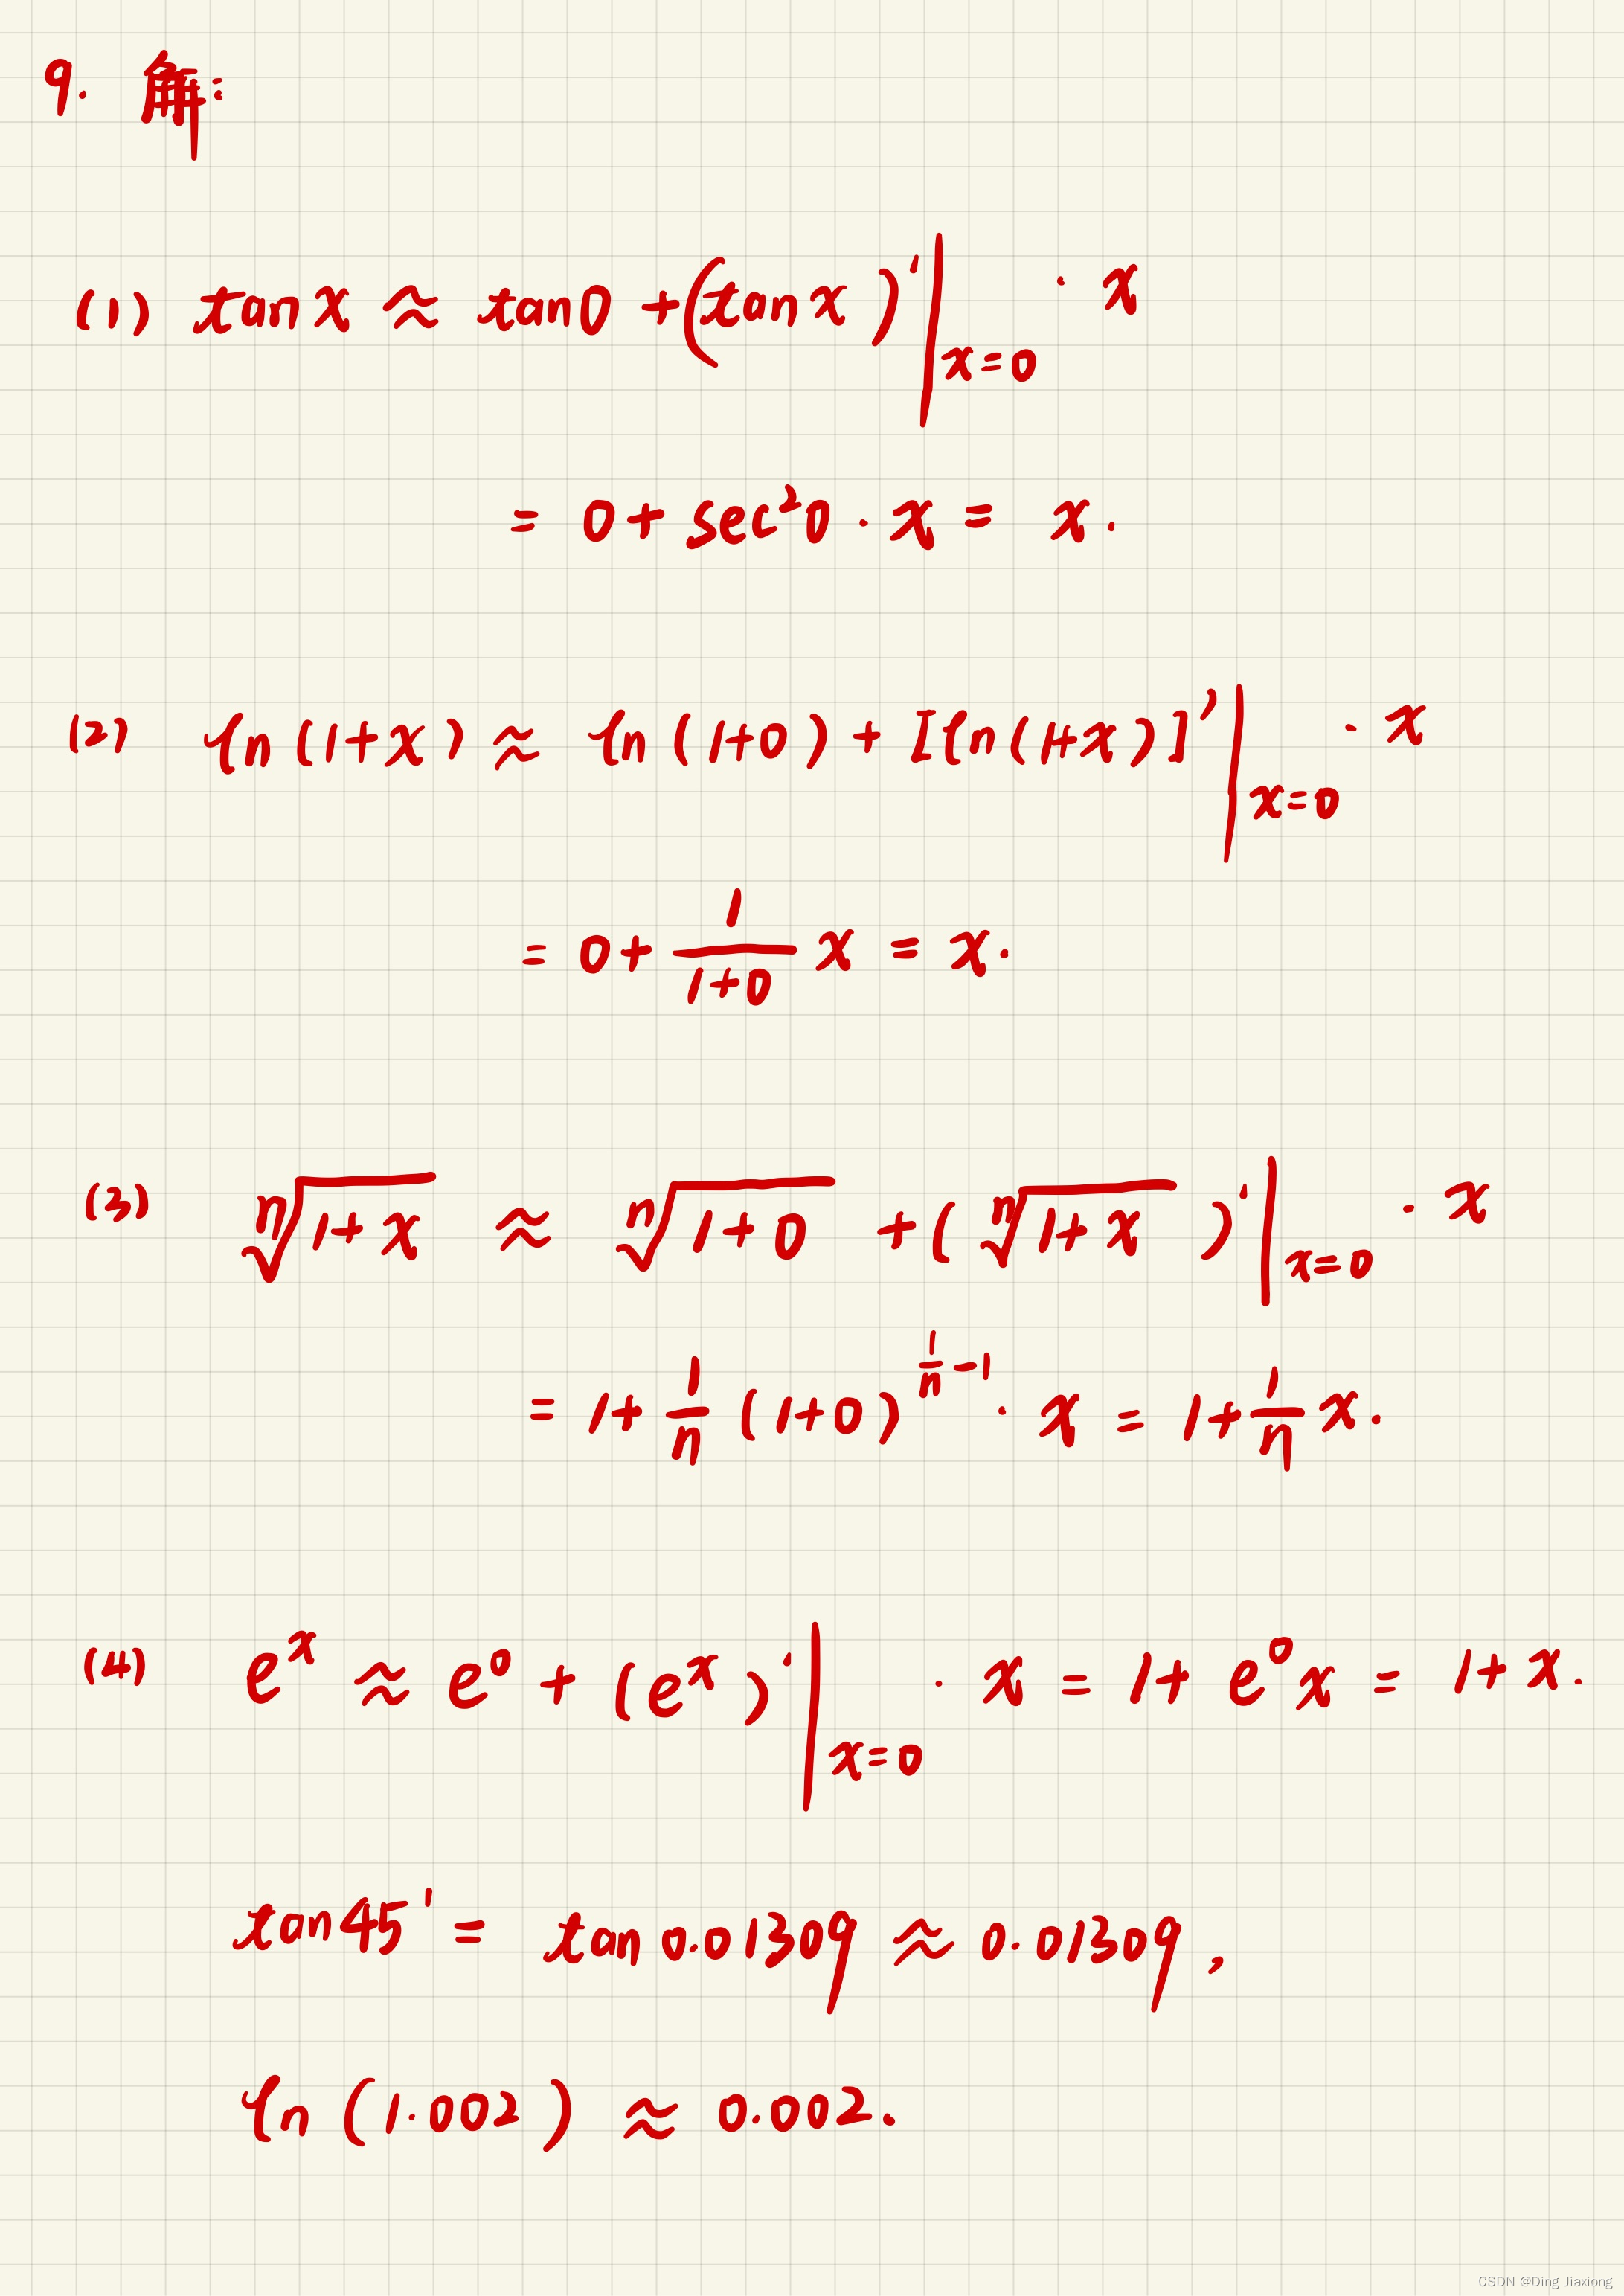 9. 解:
(1) tan x ≈ tan 0 + (tan x)'|ₓ₌₀ · x
= 0 + sec²0 · x = x.
(2) ln(1+x) ≈ ln(1+0) + [ln(1+x)]'|ₓ₌₀ · x
= 0 + \frac{1}{1+0} x = x.
(3) \sqrt[n]{1+x} ≈ \sqrt[n]{1+0} + (\sqrt[n]{1+x})'|ₓ₌₀ · x
= 1 + \frac{1}{n} (1+0)^{\frac{1}{n}-1} · x = 1 + \frac{1}{n} x.
(4) e^x ≈ e^0 + (e^x)'|ₓ₌₀ · x = 1 + e^0 x = 1 + x.
tan 45' = tan 0.01309 ≈ 0.01309,
ln(1.002) ≈ 0.002.
CSDN @Ding Jiaxiong